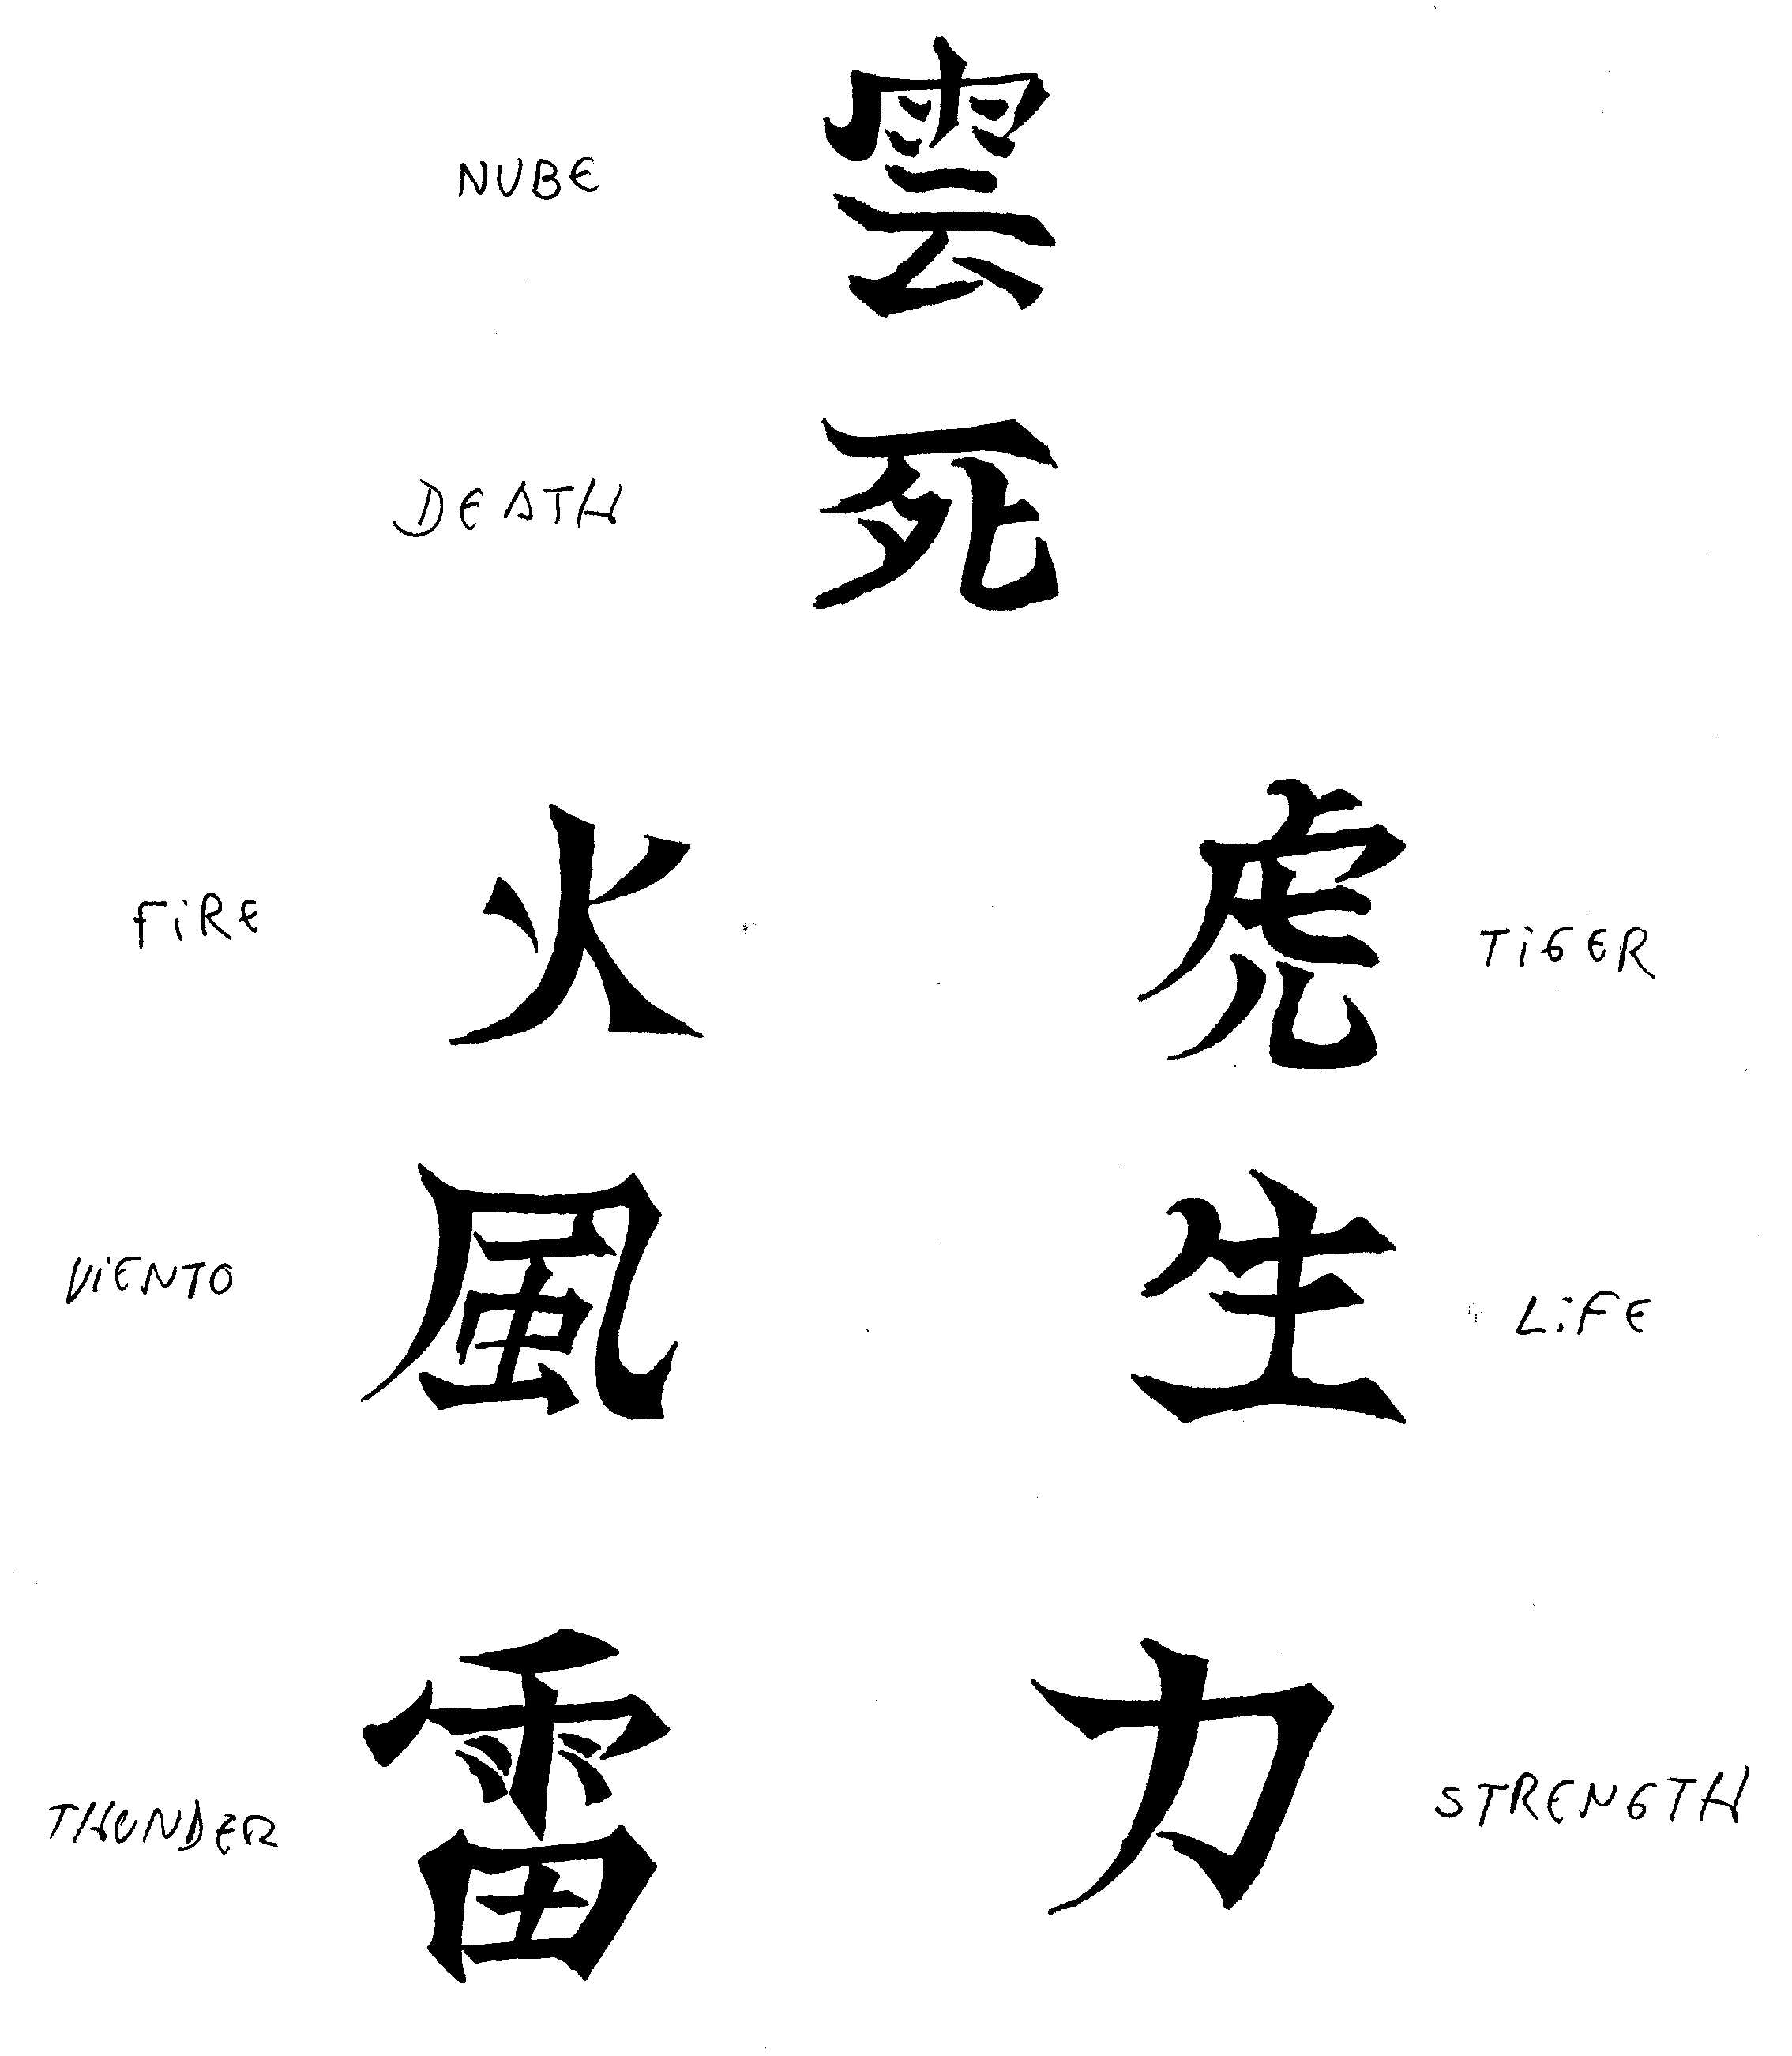 NUBE 雲
DEATH 死
FiRE 火 虎 TiGER
ViENTO 風 生 LiFE
THUNDER 雷 力 STRENGTH